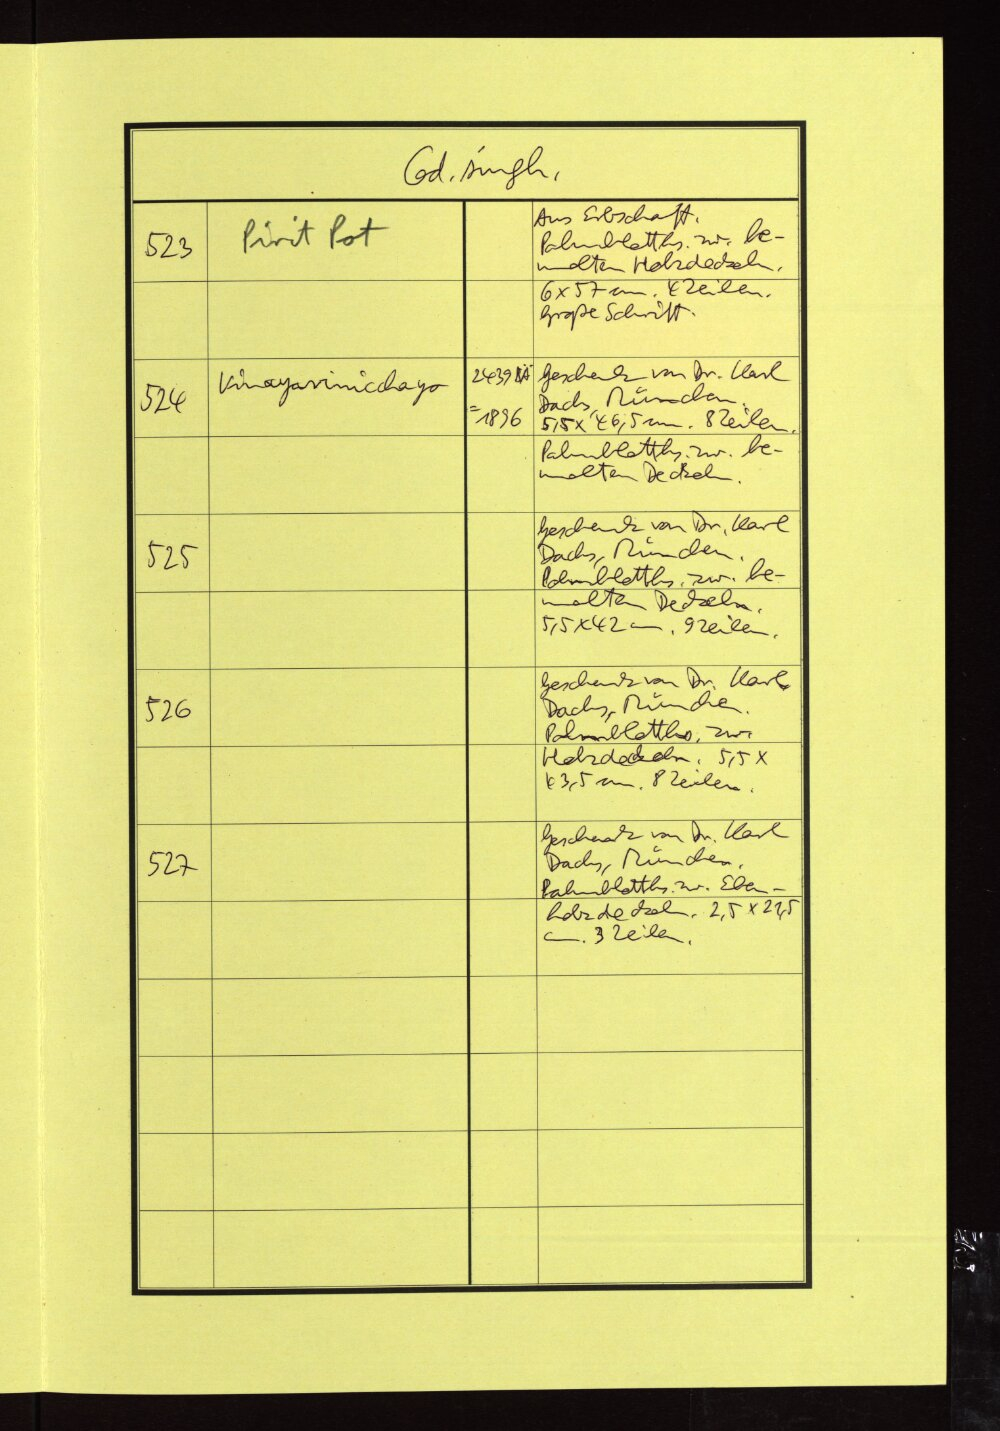 Cod. singh.
523
Pirit Pot
Aus Erbschaft.
Palmblatths. zw. be-
malten Holzdeckeln.
6 x 57 cm. 4 Zeilen.
Große Schrift.
524
Vinayavinicchayo
2439 BÄ
=1896
Geschenk von Dr. Karl
Dachs, München.
5,5 x 46,5 cm. 8 Zeilen.
Palmblatths. zw. be-
malten Deckeln.
525
Geschenk von Dr. Karl
Dachs, München.
Palmblatths. zw. be-
malten Deckeln.
5,5 x 42 cm. 9 Zeilen.
526
Geschenk von Dr. Karl
Dachs, München.
Palmblatths. zw.
Holzdeckeln. 5,5 x
43,5 cm. 8 Zeilen.
527
Geschenk von Dr. Karl
Dachs, München.
Palmblatths. zw. Eben-
holzdeckeln. 2,5 x
cm. 3 Zeilen.